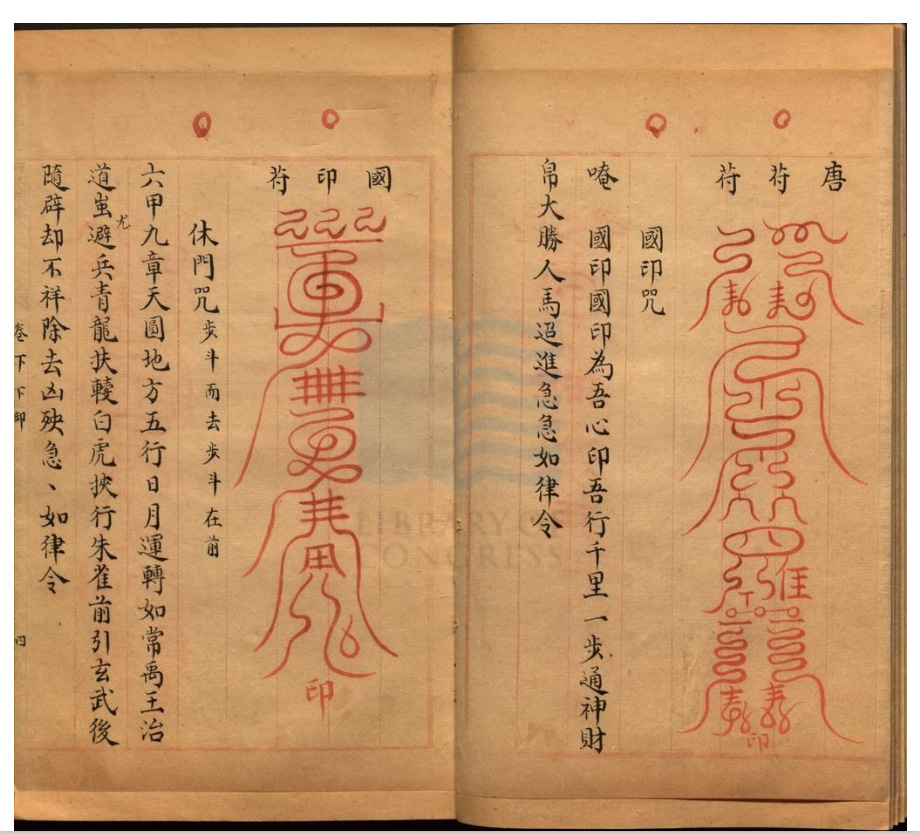 唐符符
國印咒
唵 國印國印為吾心印吾行千里一步通神財
帛大勝人馬迢進急急如律令
印
國印符
印
休門咒步斗而去步斗在前
六甲九章天圓地方五行日月運轉如常禹王治
道蚩尤避兵青龍扶轅白虎挾行朱雀前引玄武後
隨辟却不祥除去凶殃急、如律令
卷下下卯
四
LIBRARY OF
CONGRESS